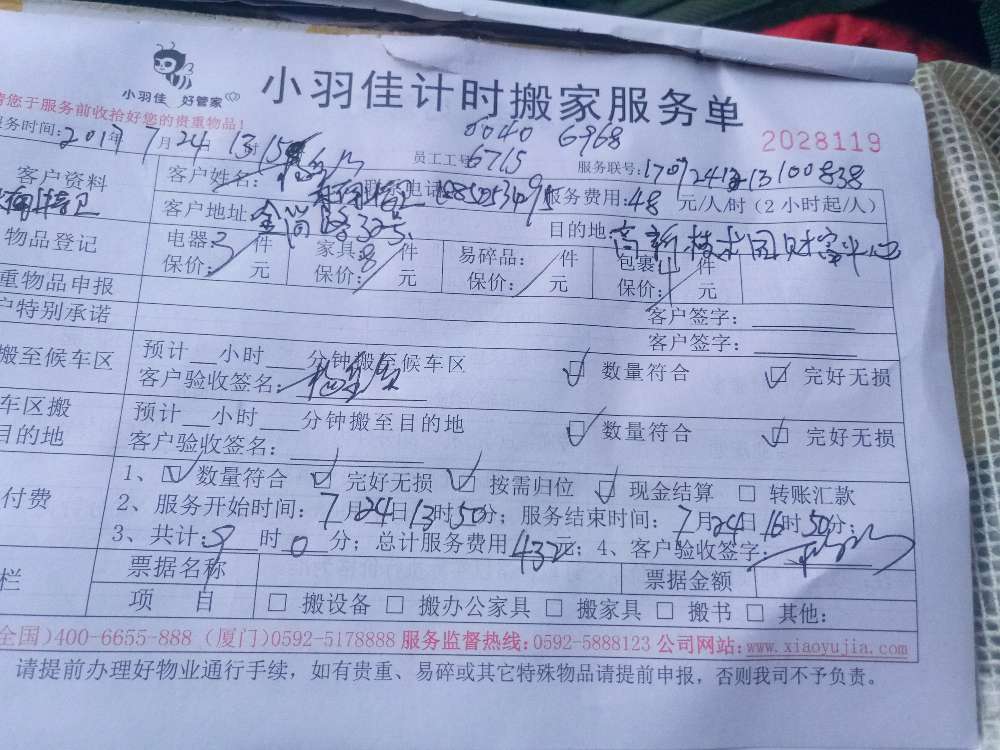 小羽佳 好管家
小羽佳计时搬家服务单
请您于服务前收拾好您的贵重物品!
0040 6968
2028119
服务时间:2017年7月24日13时15
员工工号6715
服务联号:
客户资料
客户姓名:
联系电话
服务费用:48元/人/时(2小时起/人)
客户地址:金尚路
目的地:高新技术园财富中心
物品登记
电器:3件 家具8件 易碎品:/件 包裹:4件
保价:/元 保价:/元 保价:/元 保价:/元
重物品申报 客户签字:
户特别承诺 客户签字:
搬至候车区
预计__小时__分钟搬至候车区
数量符合 完好无损
客户验收签名:
车区搬
目的地
预计__小时__分钟搬至目的地
数量符合 完好无损
客户验收签名:
付费
1、数量符合 完好无损 按需归位 现金结算 转账汇款
2、服务开始时间:7月24日13时50分;服务结束时间:7月24日16时50分;
3、共计:9时0分;总计服务费用432元;4、客户验收签字:
栏
票据名称 票据金额
项 目 搬设备 搬办公家具 搬家具 搬书 其他:
全国)400-6655-888 (厦门)0592-5178888 服务监督热线:0592-5888123 公司网站:www.xiaoyujia.com
请提前办理好物业通行手续,如有贵重、易碎或其它特殊物品请提前申报,否则我司不予负责。